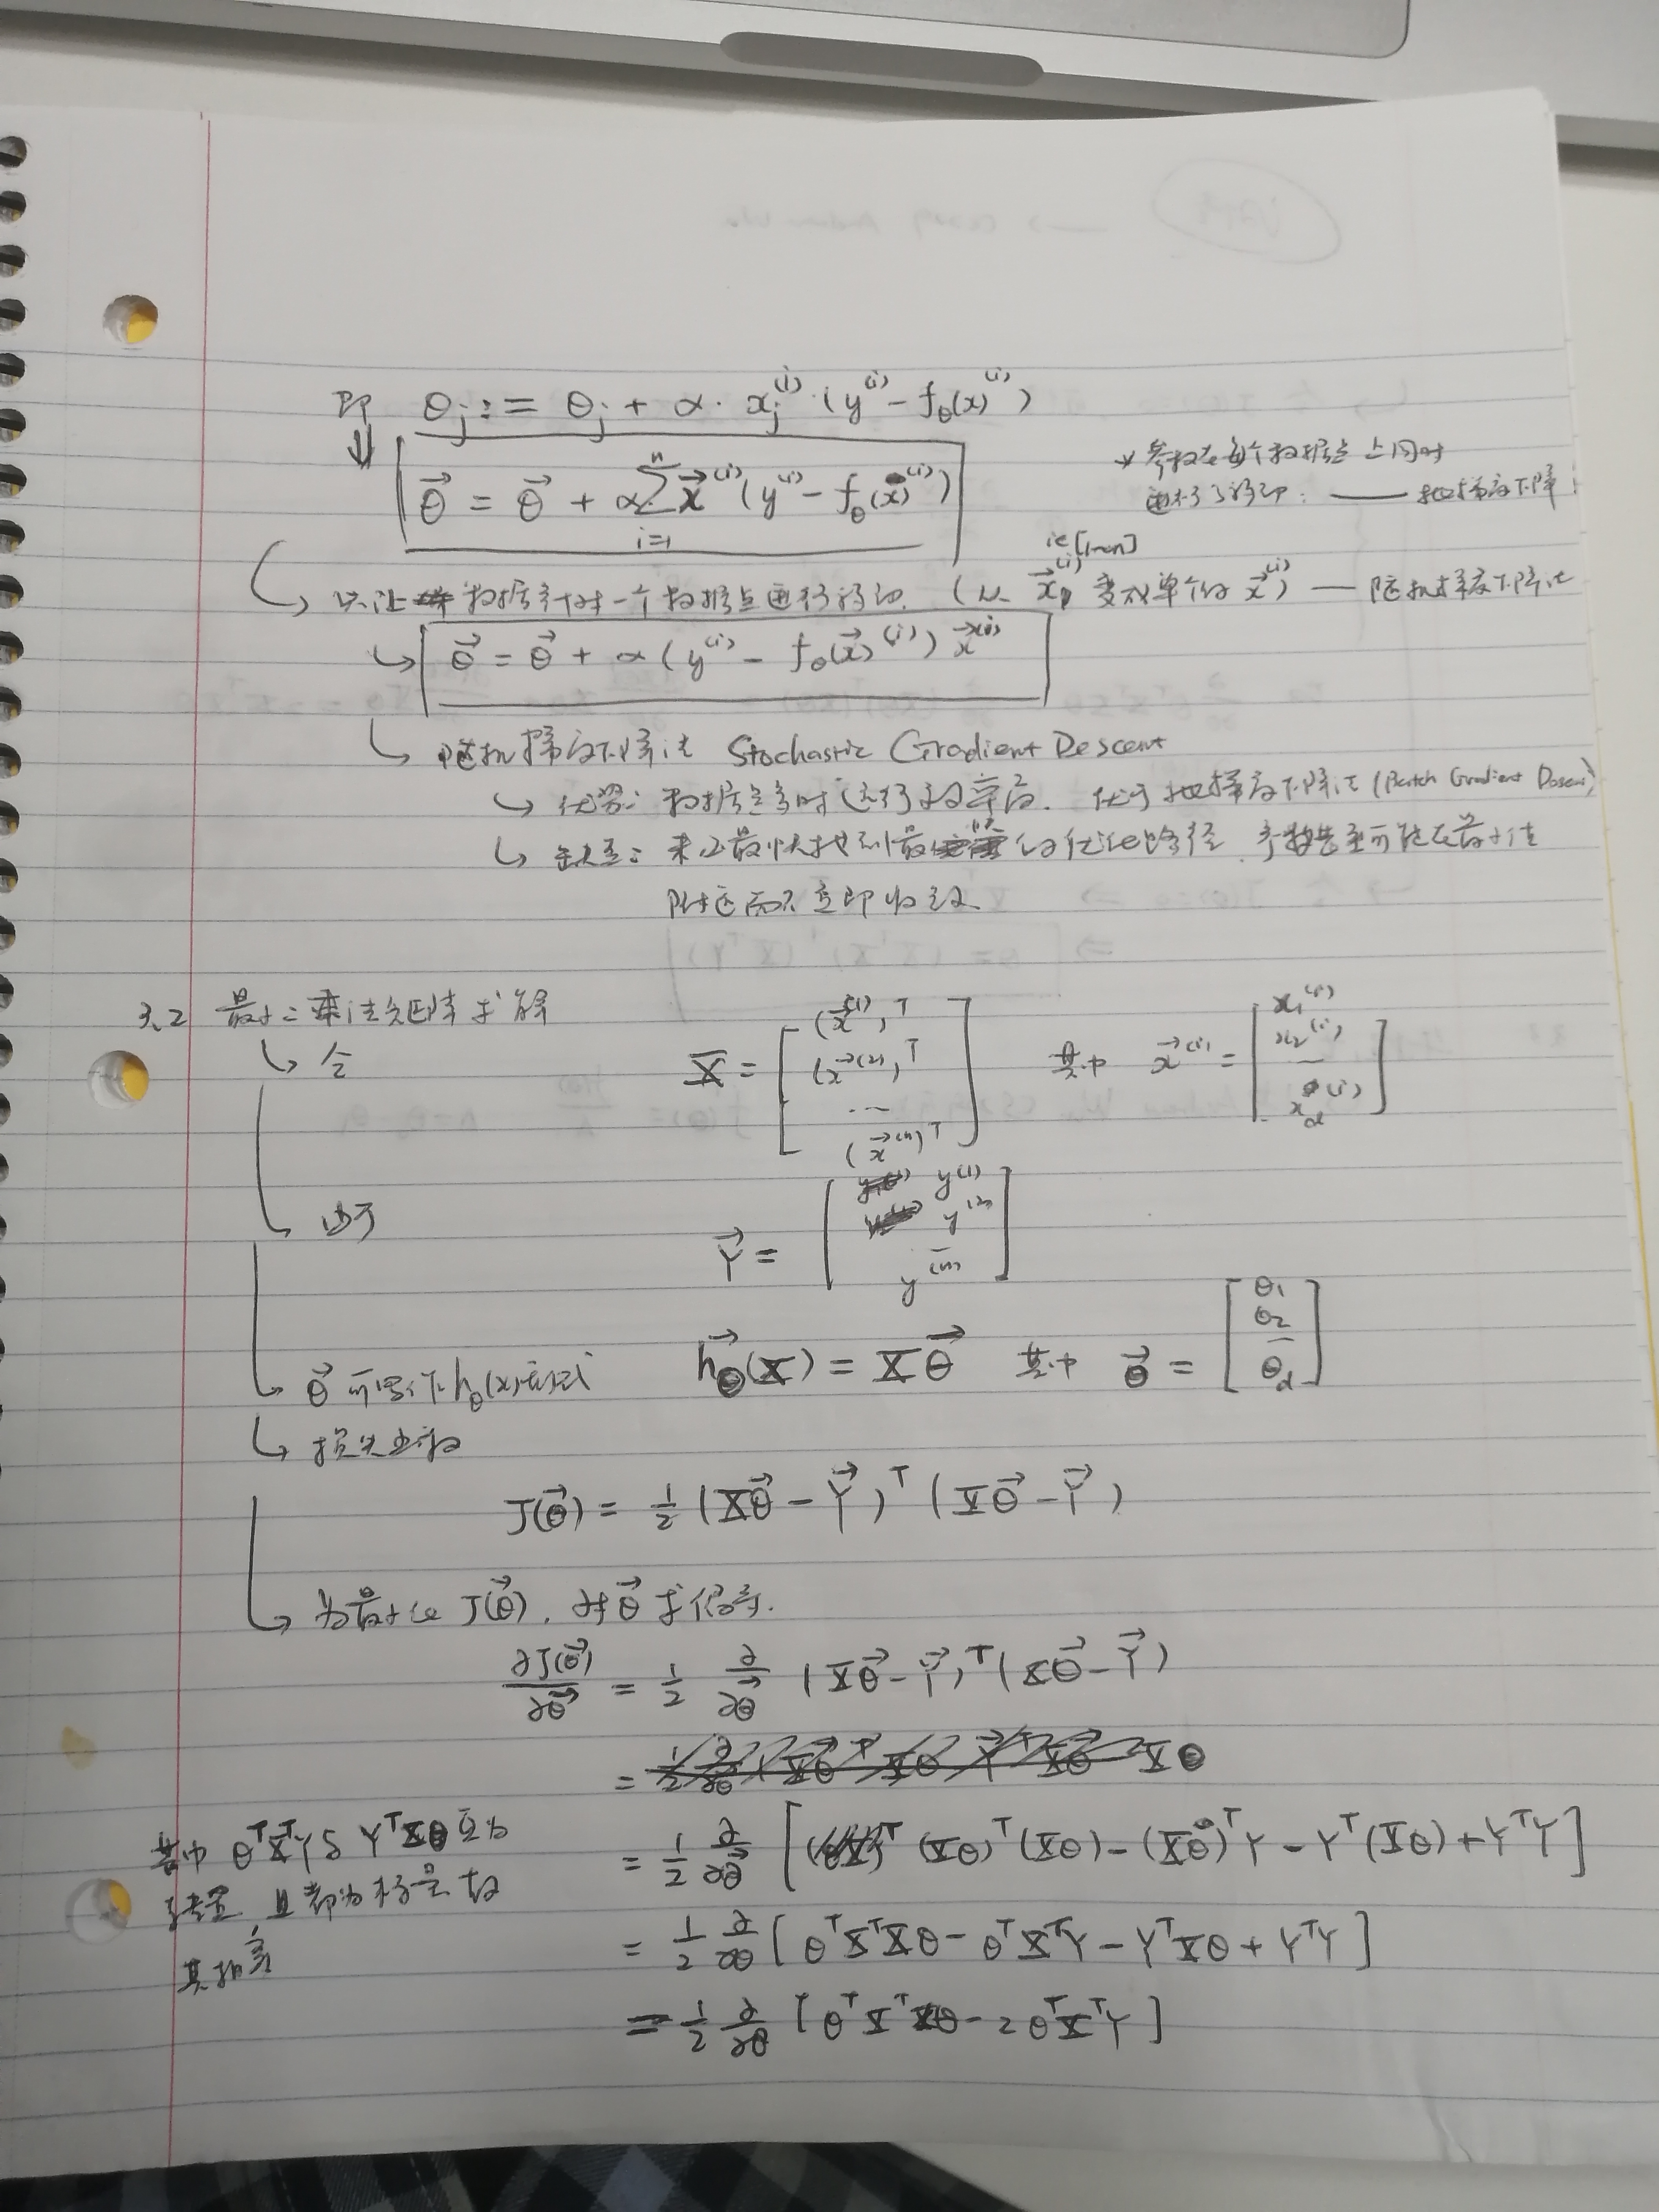 即 θj := θj + α · xj^(i) · (y^(i) − fθ(x)^(i))
⇓ θ⃗ = θ⃗ + α Σ_{i=1}^{n} x⃗^(i) (y^(i) − fθ(x⃗)^(i))
* 参数在每个数据点上同时
进行了移动. —— 批梯度下降
i∈[1~n]
↳ 只让数据针对一个数据点进行移动. (从 x⃗^(i) 变成单个的 x⃗^(i)) — 随机梯度下降法
↳ θ⃗ = θ⃗ + α (y^(i) − fθ(x⃗)^(i)) x⃗^(i)
↳ 随机梯度下降法 Stochastic Gradient Descent
↳ 优势: 数据量多时运行效率高. 优于批梯度下降法 (Batch Gradient Descent)
↳ 缺点: 未必最快找到最 的优化路径, 参数甚至可能在最小值
附近而不立即收敛
3.2 最小二乘法矩阵求解
↳ 令 X = [ (x⃗^(1))^T (x⃗^(2))^T ... (x⃗^(n))^T ] 其中 x⃗^(i) = [ x1^(i) x2^(i) ... xd^(i) ]
↳ 由于 Y⃗ = [ y^(1) y^(2) ... y^(n) ]
↳ θ⃗ 可写作 hθ(x) 形式 h⃗θ(X) = Xθ⃗ 其中 θ⃗ = [ θ1 θ2 ... θd ]
↳ 损失函数
J(θ⃗) = 1/2 (Xθ⃗ − Y⃗)^T (Xθ⃗ − Y⃗)
↳ 为最小化 J(θ⃗), 对 θ⃗ 求偏导.
∂J(θ⃗)/∂θ⃗ = 1/2 ∂/∂θ⃗ (Xθ⃗ − Y⃗)^T (Xθ⃗ − Y⃗)
= Xθ
= 1/2 ∂/∂θ⃗ [ (Xθ)^T (Xθ) − (Xθ)^T Y − Y^T (Xθ) + Y^T Y ]
= 1/2 ∂/∂θ [ θ^T X^T Xθ − θ^T X^T Y − Y^T Xθ + Y^T Y ]
= 1/2 ∂/∂θ [ θ^T X^T Xθ − 2 θ^T X^T Y ]
其中 θ^T X^T Y 与 Y^T Xθ 互为
转置, 且都为标量 故
其相等